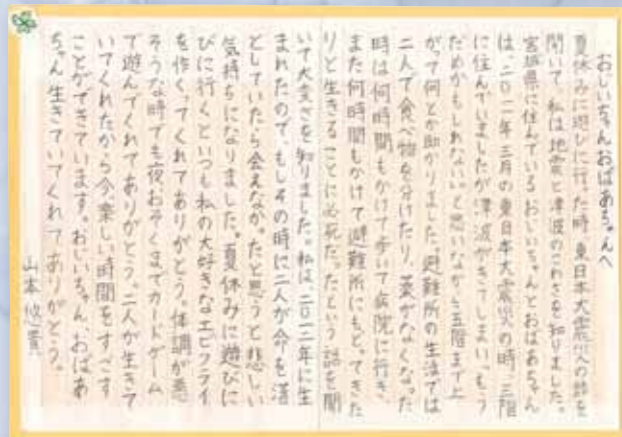 おじいちゃんおばあちゃんへ
夏休みに遊びに行った時、東日本大震災の話を
聞いて、私は地震と津波のこわさを知りました。
宮城県に住んでいるおじいちゃんとおばあちゃん
は、二〇一一年三月の東日本大震災の時、三階
に住んでいましたが津波がきてしまい、もう
だめかもしれないと思いながら五階まで上
がって何とか助かりました。避難所の生活では
二人で食べ物を分けたり、薬がなくなった
時は何時間もかけて歩いて病院に行き、
また何時間もかけて避難所にもどってきた
りと生きることに必死だったという話を聞
いて大変さを知りました。私は、二〇一二年に生
まれたので、もしその時に二人が命を落
としていたら会えなかったと思うと悲しい
気持ちになりました。夏休みに遊びに
びに行くといつも私の大好きなエビフライ
を作ってくれてありがとう。体調が悪
そうな時でも夜おそくまでカードゲーム
で遊んでくれてありがとう。二人が生きて
いてくれたから今、楽しい時間をすごす
ことができています。おじいちゃん、おばあ
ちゃん生きていてくれてありがとう。
山本悠貴